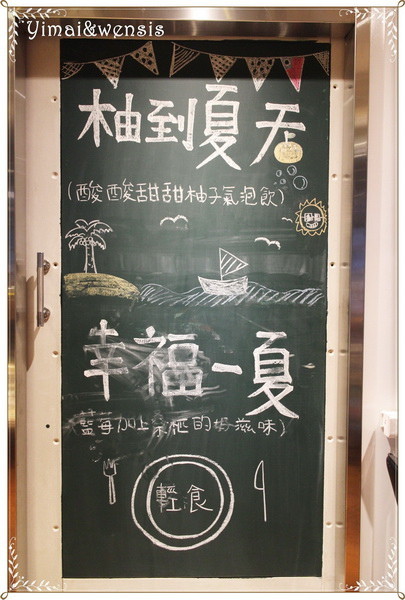 Yimai&wensis
柚到夏天
(酸酸甜甜柚子氣泡飲)
幸福一夏
(藍莓加上桑椹的好滋味)
輕食